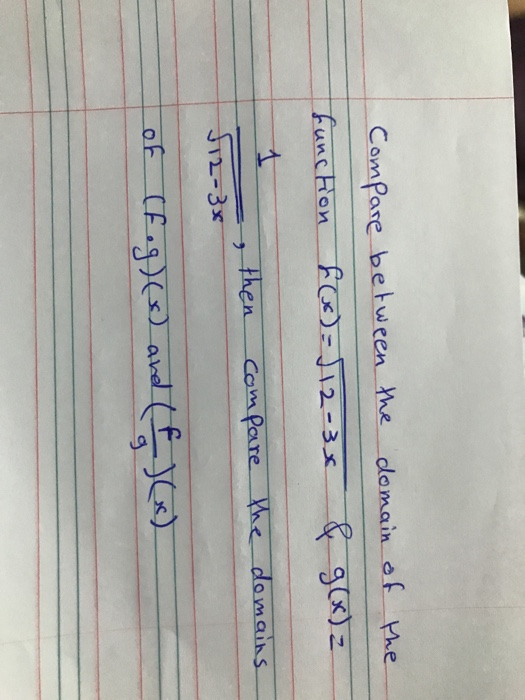 Compare between the domain of the
function f(x)=√12-3x & g(x)=
1/√12-3x, then compare the domains
of (f.g)(x) and (f/g)(x)